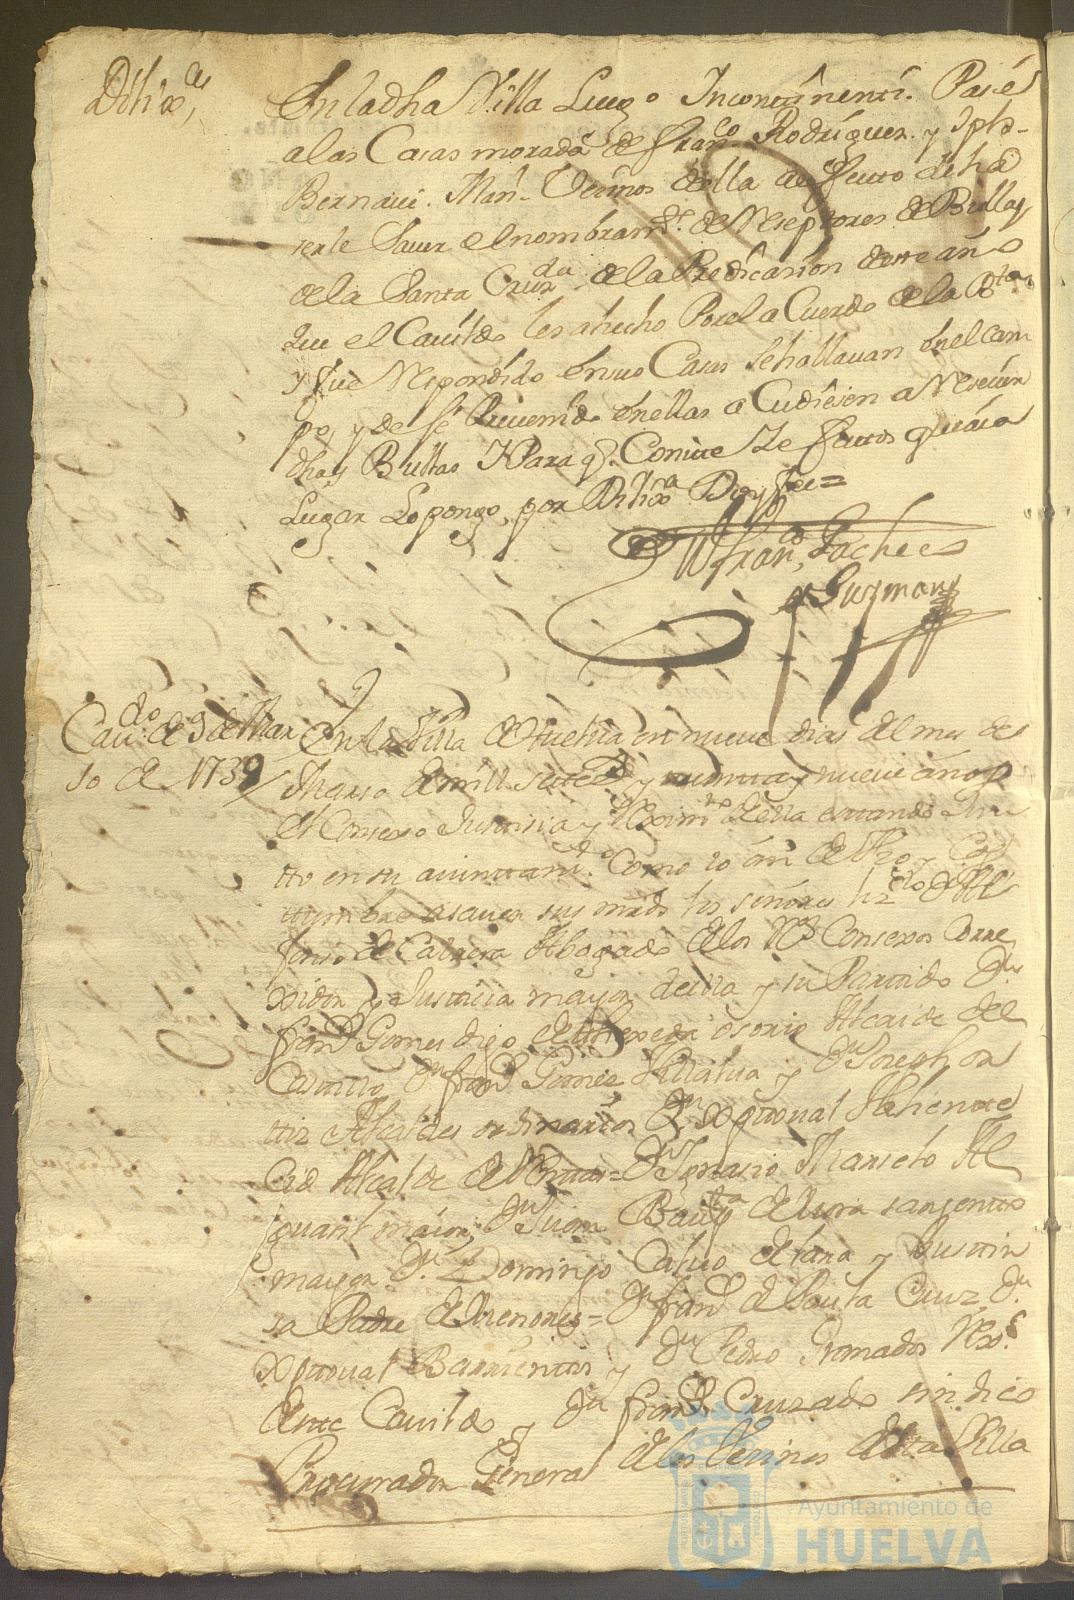 Dilix.ª
En la dha Villa Luego Incontinenti. Pasé
a las Casas morada de Fran.co Rodriguez y Jph
Bernave. Man.l Vecinos della a efecto de ha
serle Saver el nombram.to de Reseptores de Bullas
de la Santa Cruzda. de la Predicasion deste año
que el Cavildo les a hecho Por el a Cuerdo de la B.ta
y fue Respondido en sus Casas Se hallavan en el cam
po, y de se Prevenido en ellas a Cudiesen a Resevir
dhas Bullas Y Para q.e Conste
Lugar Lo pongo, por Dilix.ª Doy fee =
Fran.co Pacheco
y Guzman
Cav.do de 9 de Mar
so de 1739
En la Villa de Huelva en nueve dias del mes de
Marso de mill setec.s y treinta y nueve años
el Consexo Justisia y Reximi.to della estando Jun
tto en su aiuntam.to Como lo an de Uzo y Cos
tumbre a saver sus mrds los señores liz.do D.n Al
fonso de Cabrera Abogado de los R.s Consexos Corre
xidor y Justicia mayor della y su Partido D.n
Fran.co Gomes digo de Osorio Alcaide del
Castillo D.n Fran.co Gomez Villalva y D.n Joseph or
tiz Alcaldes ordinarios D.n Xptoval
Cid Alcalde de = D.n Ignasio Marselo Al
guasil maior; D.n Juan Bau.ta de Lora sargento
mayor D.n Domingo Calvo de Lana y Bustin
sa Padre de Menores = D.n Fran.co de Paula Cruz D.n
Xptoval Barrientos y D.n Pedro Granados Rex.s
deste Cavildo y D.n Fran.co Cruzado sindico
Procurador General de los Vecinos desta Villa
Ayuntamiento de
HUELVA